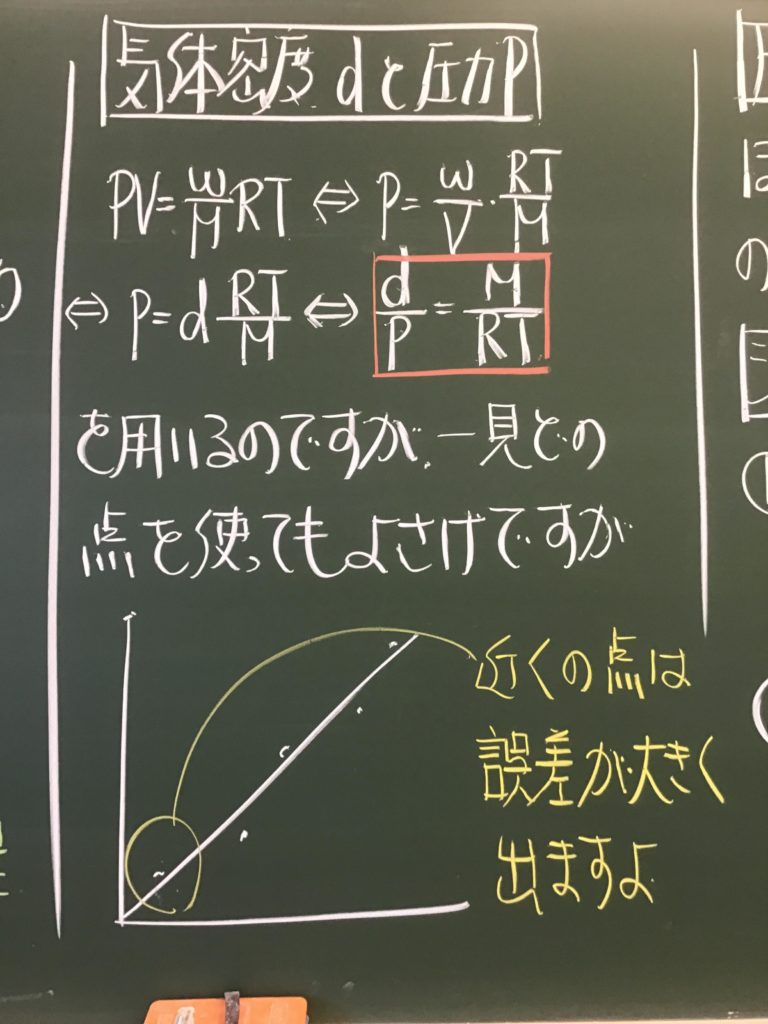 気体密度 dと圧力P
PV=w/M RT ⇔ P=w/V・RT/M
⇔ P=d RT/M ⇔ d/P=M/RT
を用いるのですが、一見どの
点を使ってもよさげですが
近くの点は
誤差が大きく
出ますよ